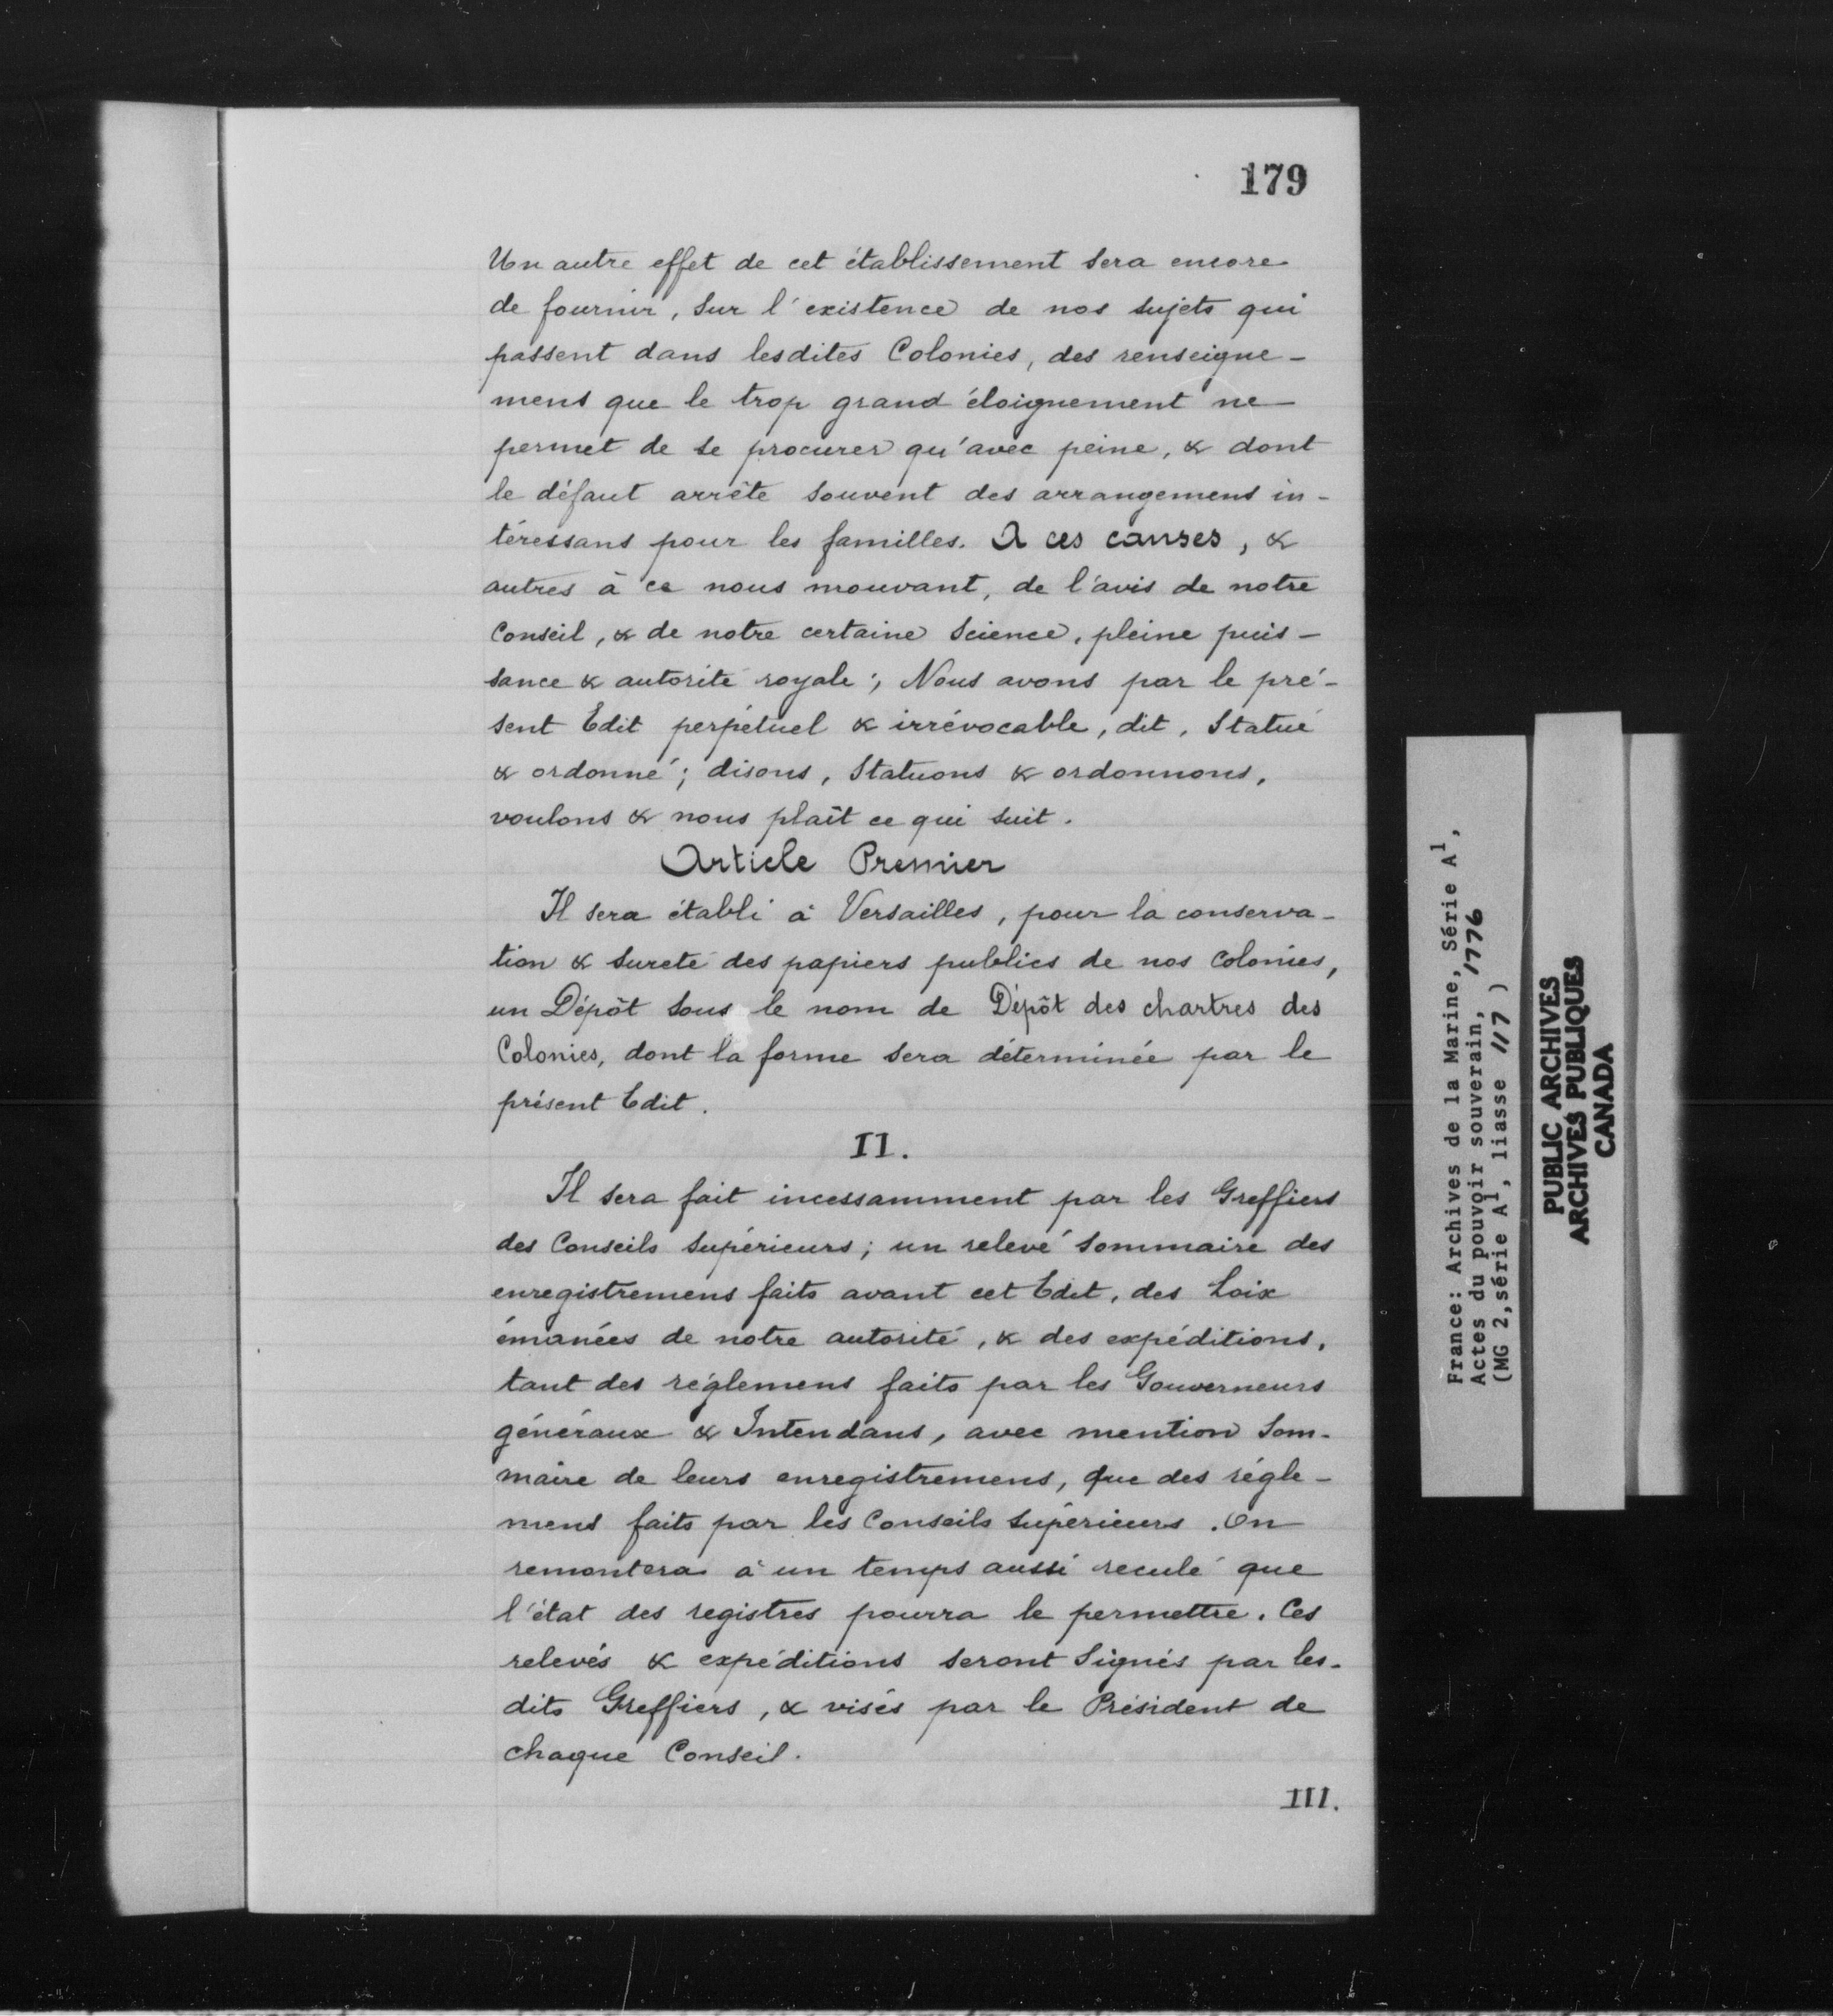 179
Un autre effet de cet établissement sera encore
de fournir, sur l'existence de nos sujets qui
passent dans lesdites Colonies, des renseigne-
mens que le trop grand éloignement ne
permet de se procurer qu'avec peine, & dont
le défaut arrête souvent des arrangemens in-
téressans pour les familles. A ces causes, &
autres à ce nous mouvant, de l'avis de notre
Conseil, & de notre certaine Science, pleine puis-
sance & autorité royale; Nous avons par le pré-
sent Edit perpétuel & irrévocable, dit, Statué
& ordonné; disons, Statuons & ordonnons,
voulons & nous plaît ce qui suit.
Article Premier
Il sera établi à Versailles, pour la conserva-
tion & sureté des papiers publics de nos Colonies,
un Dépôt sous le nom de Dépôt des chartres des
Colonies, dont la forme sera déterminée par le
présent Edit.
II.
Il sera fait incessamment par les Greffiers
des Conseils supérieurs; un relevé sommaire des
enregistremens faits avant cet Edit, des Loix
émanées de notre autorité, & des expéditions,
tant des réglemens faits par les Gouverneurs
généraux & Intendans, avec mention som-
maire de leurs enregistremens, que des régle-
mens faits par les Conseils supérieurs. On
remontera à un temps aussi reculé que
l'état des registres pourra le permettre. Ces
relevés & expéditions seront signés par les-
dits Greffiers, & visés par le Président de
chaque Conseil.
III.
France: Archives de la Marine, Série A1,
Actes du pouvoir souverain, 1776
(MG 2, série A1, liasse 117 )
PUBLIC ARCHIVES
ARCHIVES PUBLIQUES
CANADA